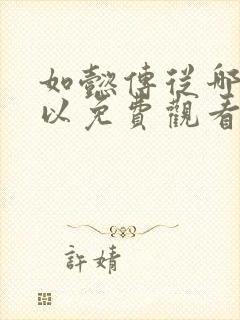 如懿傳從那
以免費觀看
許婧